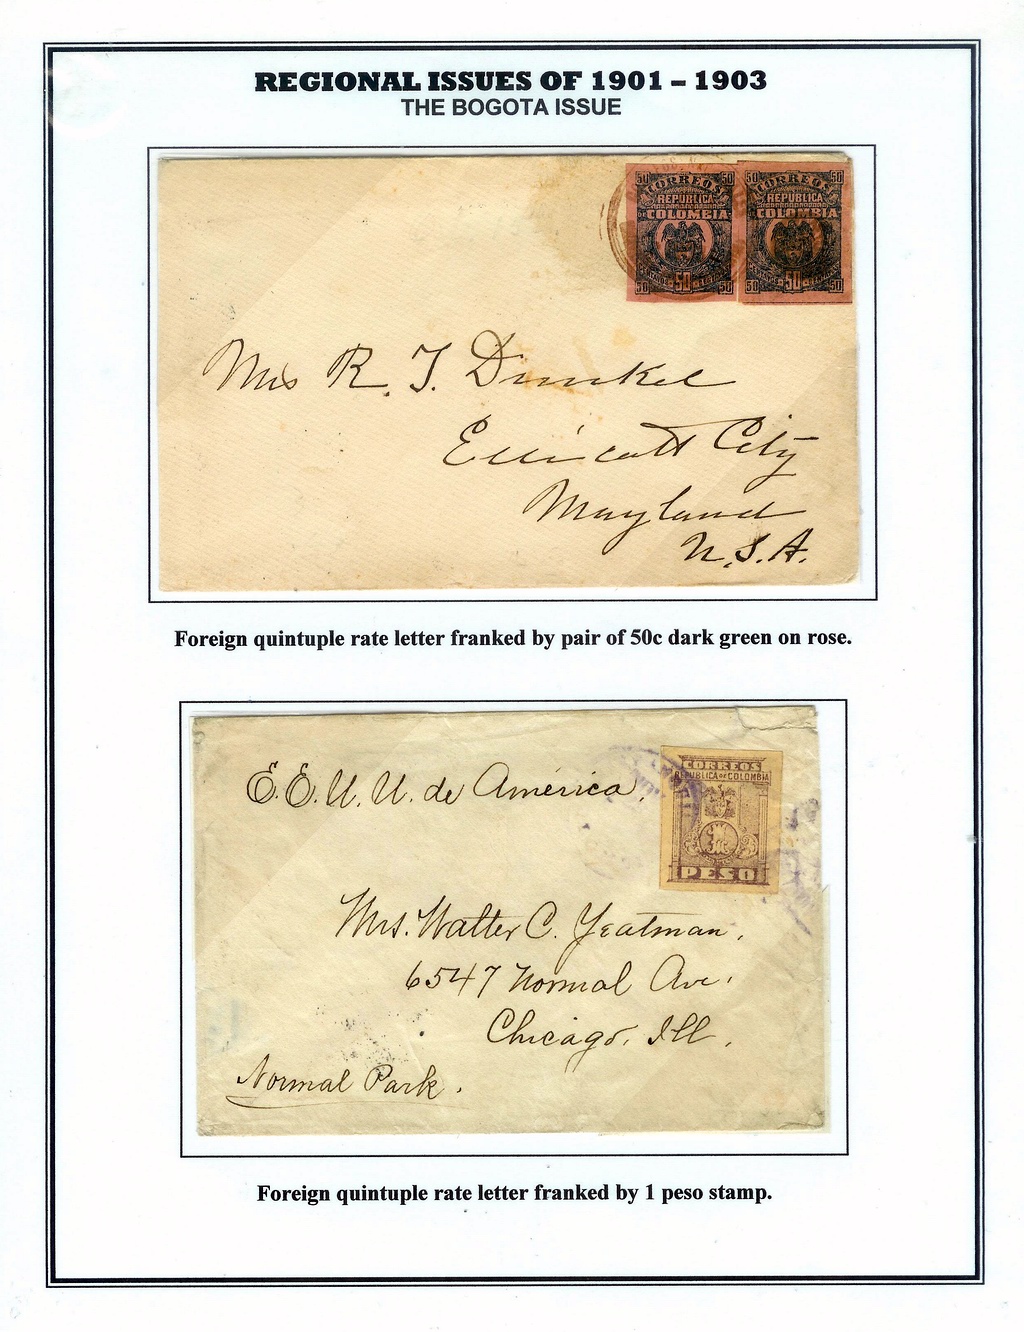 REGIONAL ISSUES OF 1901 – 1903
THE BOGOTA ISSUE
50 50 50 50
CORREOS CORREOS
REPUBLICA REPUBLICA
DE COLOMBIA DE COLOMBIA
50 50 50 50 50 50
Mrs R. T. Dunkel
Ellicott City
Maryland
U.S.A.
Foreign quintuple rate letter franked by pair of 50c dark green on rose.
E.E.U.U. de América,
CORREOS
REPUBLICA DE COLOMBIA
PESO
Mrs. Walter C. Yeatman,
6547 Normal Ave.
Chicago, Ill.
Normal Park.
Foreign quintuple rate letter franked by 1 peso stamp.